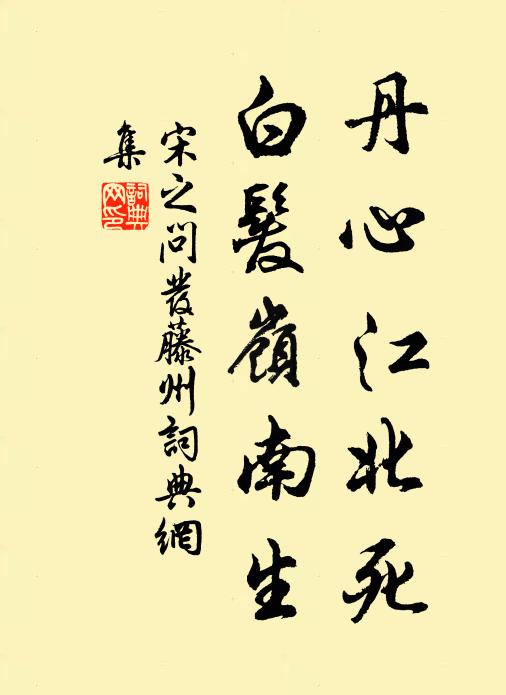 丹心江北死
白髮嶺南生
宋之問發藤州詞典網
集
詞典網印